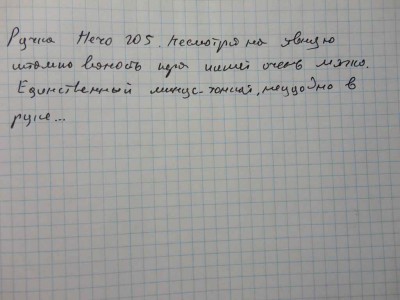 Ручка Hero 205. Несмотря на явную
штампованность пера пишет очень мягко.
Единственный минус - тонкая, неудобно в
руке...